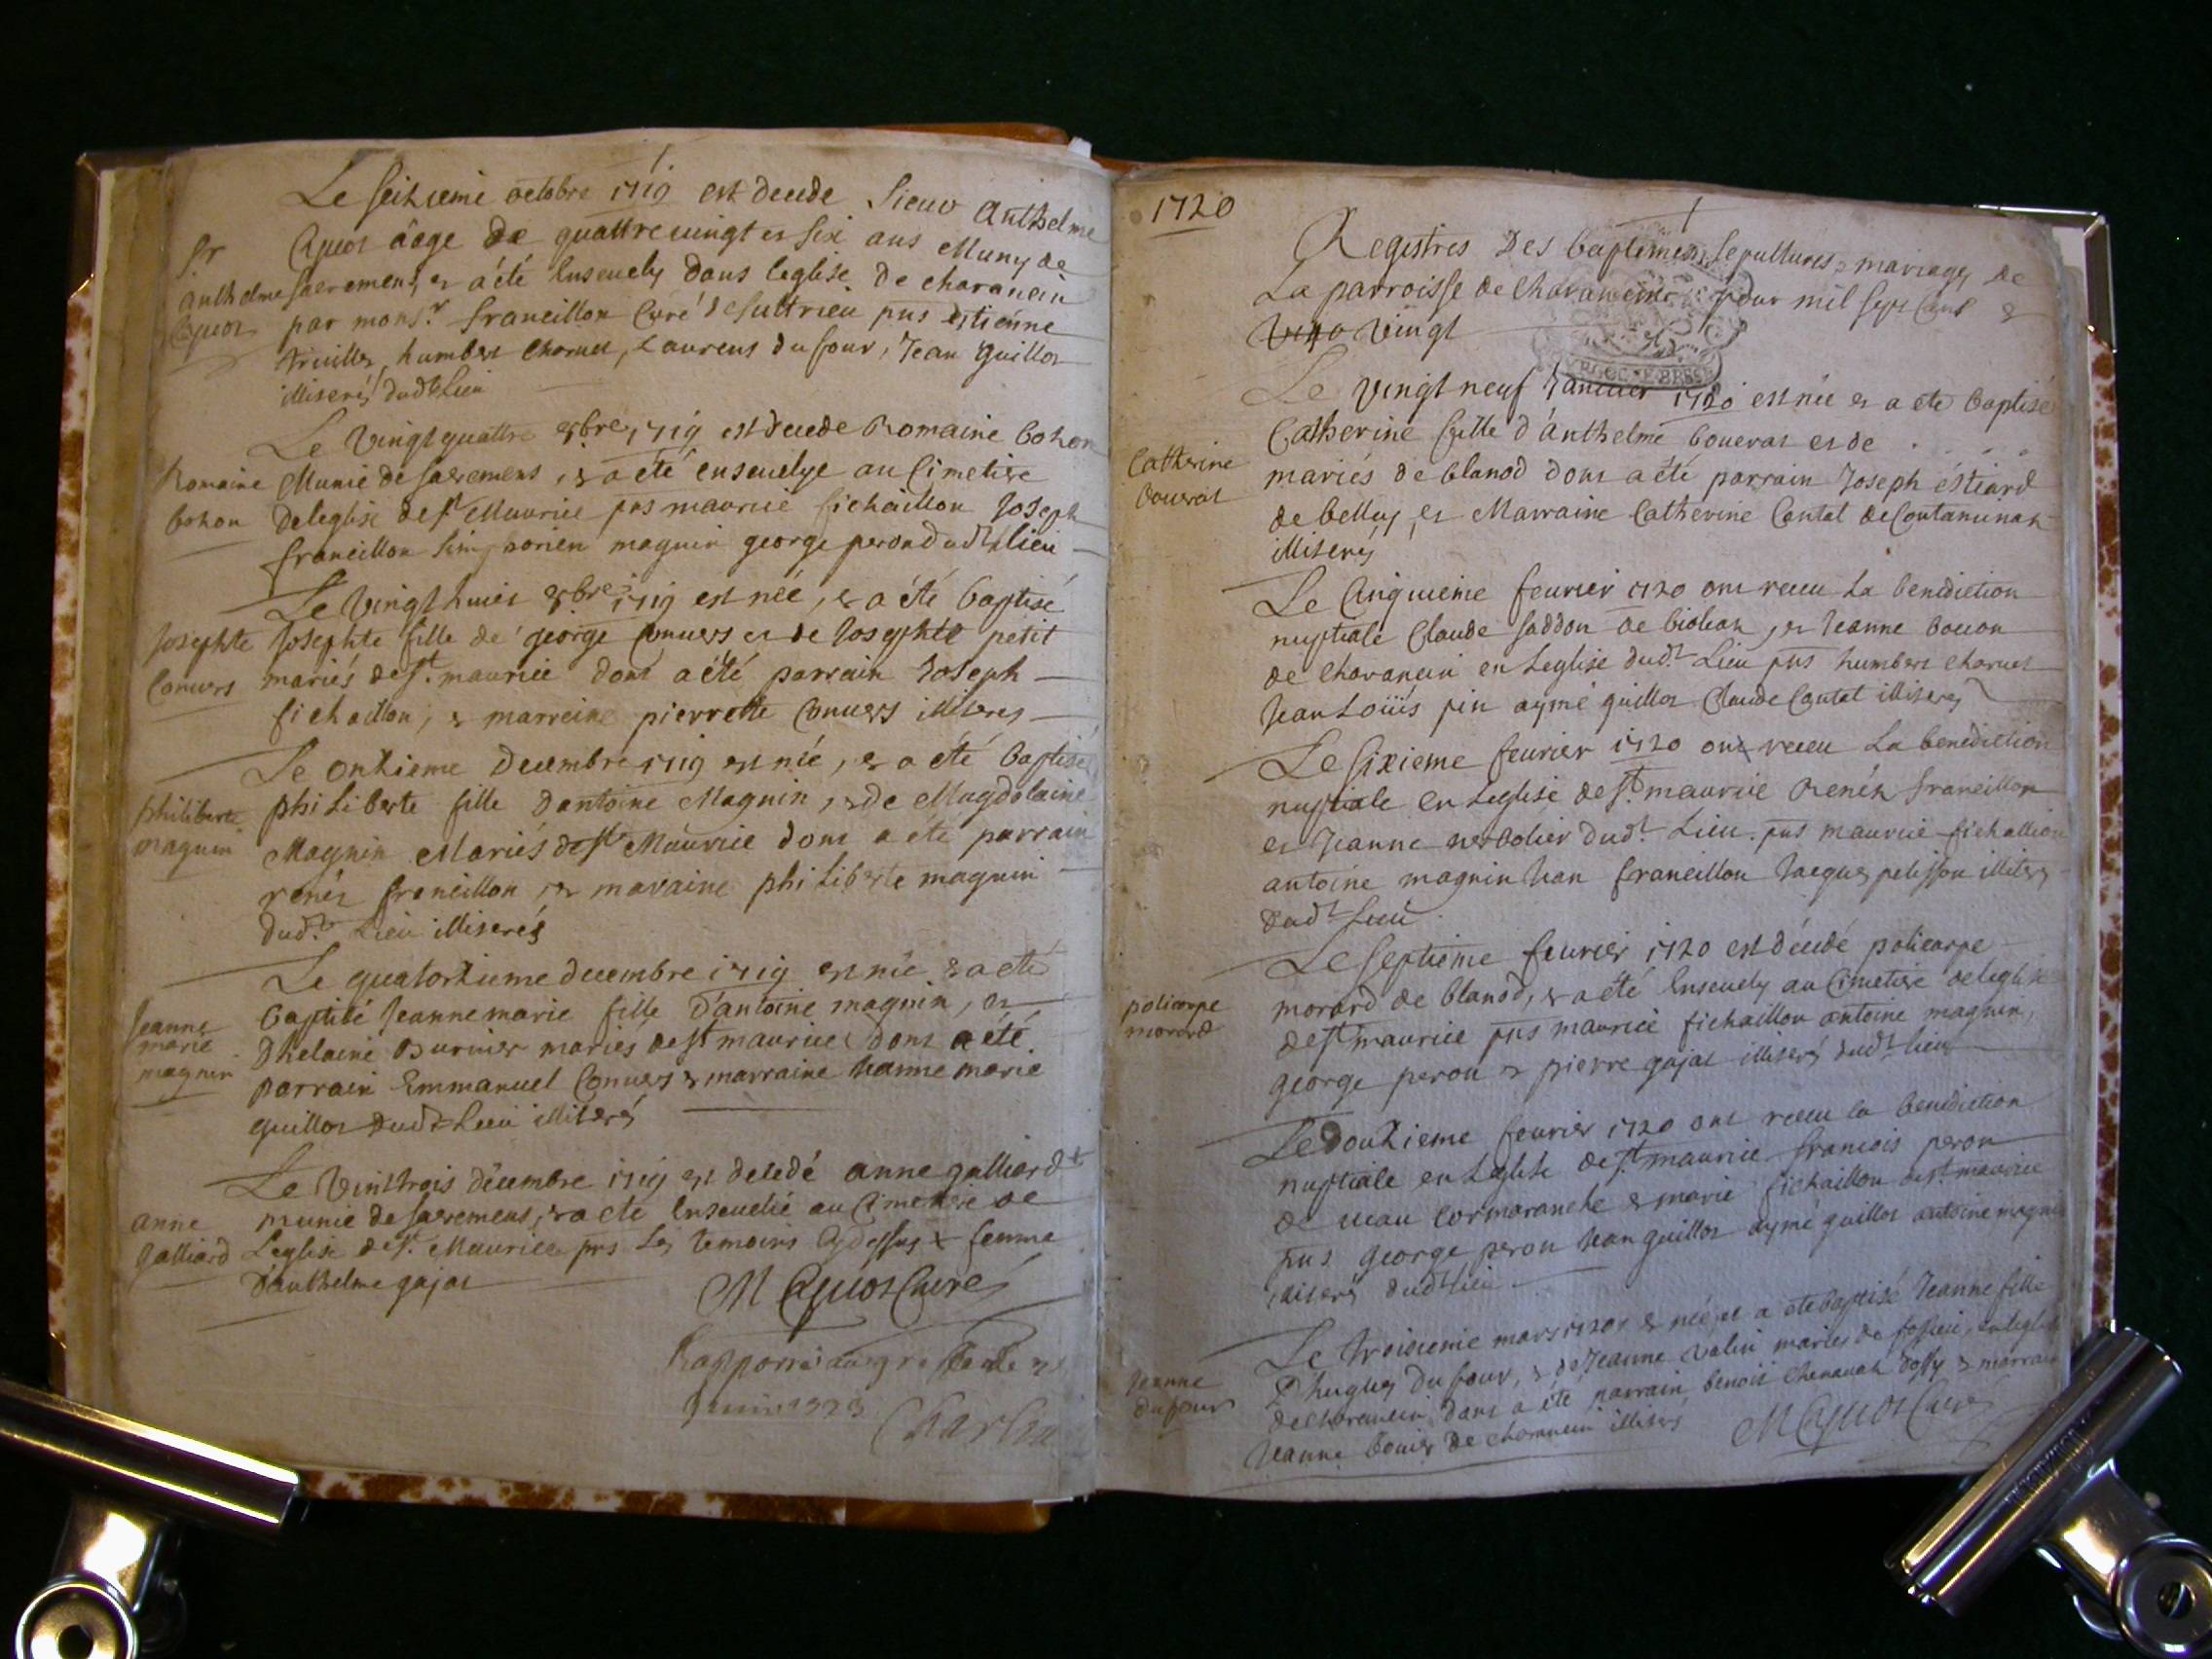 Le seizieme octobre 1719 est decede Sieur Anthelme
Cquot âage de quattrevingt et six ans Muny de
Sr
anthelme
Cquot
sacremens, et a été Enseuely dans leglise de charancin
par monsr. francillon Curé de suttrieu pns Estienne
truillet, humbert charuet, Laurens dufour, Jean guillot
illiserés dudt Lieu
Le Vingtquattre 9bre 1719 est decede Romaine bohon
Romaine
bohon
Munie de sacremens, et a été enseuelye au Cimetire
de leglise de st Maurice pns maurice fichaillon Joseph
francillon simphorien magnin george peron dudt lieu
Le Vingthuict 9bre 1719 est née, et a été baptisé
Josephte
Conuers
Josephte fille de george Conuers et de Josephte petit
mariés de st. maurice dont a été parrain Joseph
fichaillon, et marreine pierrette Conuers illiserés
Le onzieme Decembre 1719 est née, et a été baptisé
philiberte
magnin
philiberte fille dantoine Magnin, et de Magdelaine
Magnin Mariés de st Maurice dont a été parrain
renés francillon, et maraine philiberte magnin
dudt. Lieu illiserés
Le quatorzieme decembre 1719 est née et a eté
Jeanne
marie
magnin
baptisé Jeannemarie fille d'antoine magnin, et
Dhelaine Burnier mariés de st maurice dont a été
parrain Emmanuel Conuers et marraine Jeanne marie
guillot dudt Lieu illiserés
Le Vinttrois décembre 1719 est decedé anne galliard +
anne
galliard
munie de sacremens, et a ete Enseuelié au Cimetire de
Leglise de st. Maurice pns Les temoins Cydessus + femme
d'anthelme gajat
M Cquot Curé
1720
Registres Des baptemes, sepultures, mariages de
La parroisse de charancin pour mil sept Cent &
Vingt
Le Vingt neuf Januier 1720 est née et a ete baptisé
Catherine
bouerat
Catherine fille d'anthelme bouerat et de
mariés de blanod dont a été parrain Joseph éstiard
de belley, et Marraine Catherine Cantal de Contamunaz
illiserés
Le Cinquieme feurier 1720 ont receu La benediction
nuptiale Claude saddon de bioleaz, et Jeanne bouon
de charancin en Leglise dudt. Lieu pns humbert charuet
Jean Loüis pin aymé guillot Claude Cantal illiserés
Le sixieme feurier 1720 ont receu La benediction
nuptiale en Leglise de st. maurice Renés francillon
et Jeanne verdolier dudt Lieu. pns maurice fichallion
antoine magnin Jean francillon Jacques pelisson illiserés
dudt Lieu
Le septieme feurier 1720 est décédé policarpe
policarpe
morard
morard de blanod, et a été Enseuely au Cimetire de leglise
de st maurice pns maurice fichaillon antoine magnin,
george peron et pierre gajat illiserés dudt lieu
Le Douzieme feurier 1720 ont receu la benediction
nuptiale en Leglise de st maurice francois peron
de ueau Cormaranche et marie fichaillon de st. maurice
pns george peron Jean guillot aymé guillot antoine magnin
illiserés dudt lieu
Le troisieme mars 1720 est née et a ete baptisé Jeanne fille
Jeanne
dufour
D'hugues Du four, et de Jeanne Valin mariés de fossieu, en leglise
de charancin dont a été parrain benoit Chenauaz dossy et marraine
Jeanne bouier de charancin illiserés
M Cquot Curé